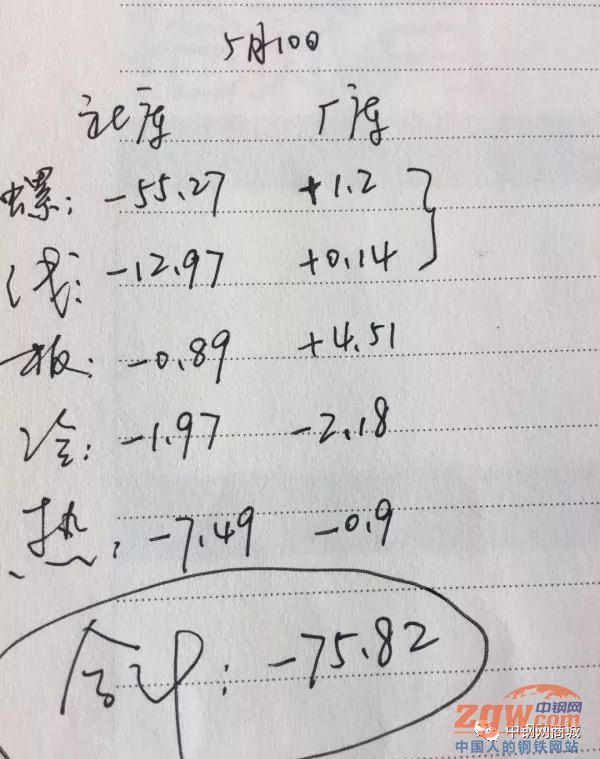 5月10日
社库 厂库
螺: -55.27 +1.2
线: -12.97 +0.14
板: -0.89 +4.51
冷: -1.97 -2.18
热: -7.49 -0.9
合计: -75.82
中钢网
zgw.com
中钢网商城
中国人的钢铁网站